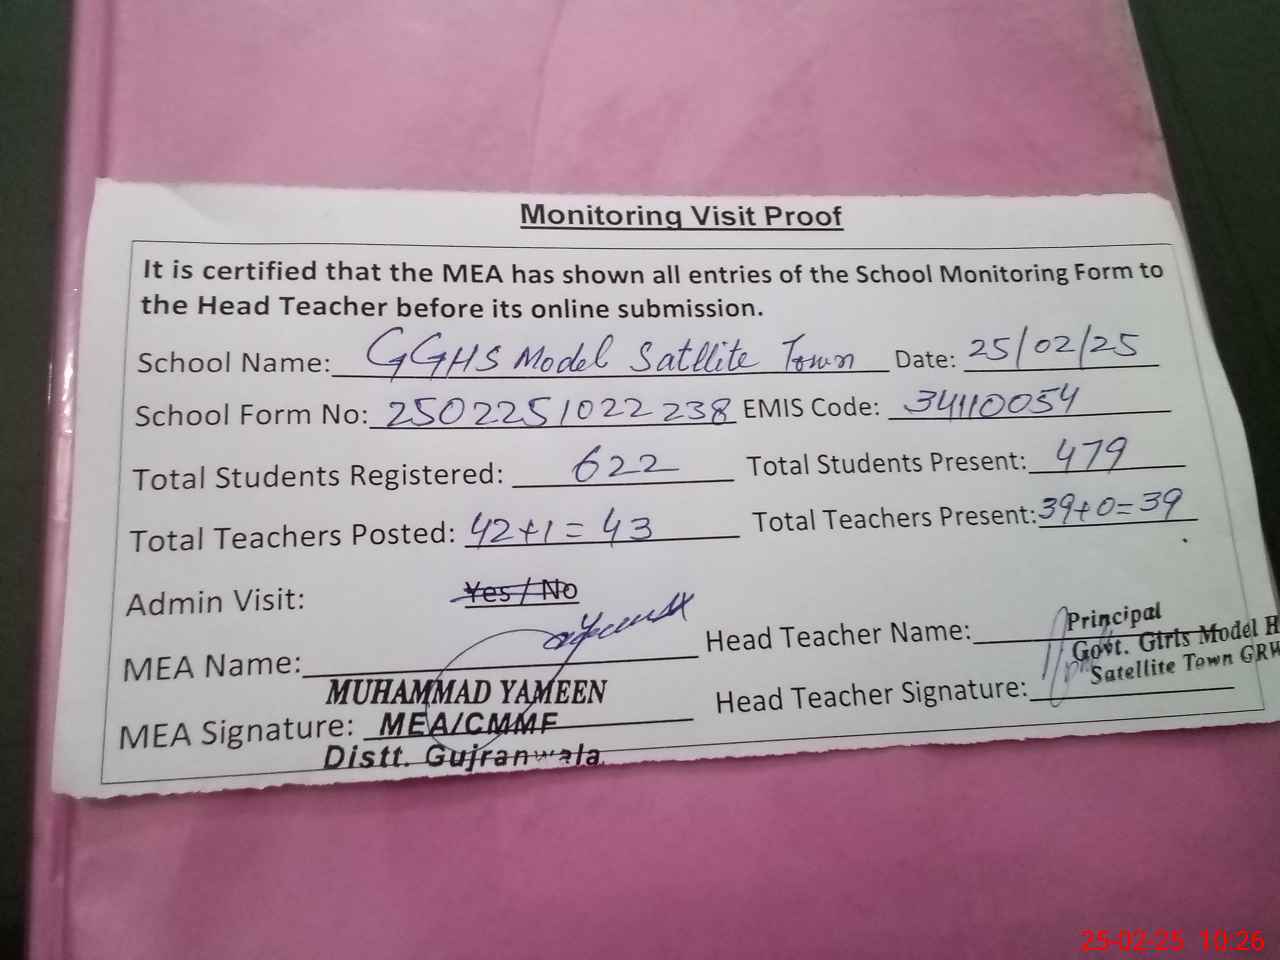 Monitoring Visit Proof
It is certified that the MEA has shown all entries of the School Monitoring Form to
the Head Teacher before its online submission.
School Name: GGHS Model Satllite Town Date: 25/02/25
School Form No: 2502251022238 EMIS Code: 34110054
Total Students Registered: 622 Total Students Present: 479
Total Teachers Posted: 42+1=43 Total Teachers Present: 39+0=39
Admin Visit: Yes / No
MEA Name: Head Teacher Name: Principal
Govt. Girls Model H
Satellite Town GRW
MUHAMMAD YAMEEN
MEA Signature: MEA/CMMF Head Teacher Signature:
Distt. Gujranwala
25-02-25 10:26